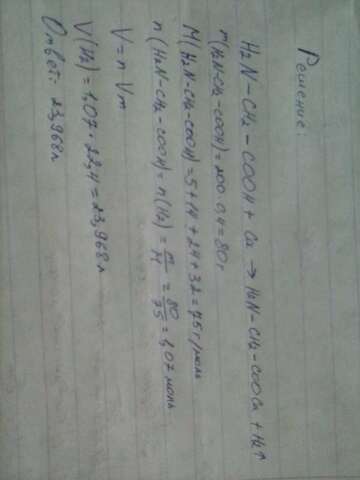 Решение:
H2N-CH2-COOH + Ca → H2N-CH2-COOCa + H2↑
m(H2N-CH2-COOH)=200·0,4=80г
M(H2N-CH2-COOH)=5+14+24+32=75г/моль
n(H2N-CH2-COOH)=n(H2)=m/M=80/75=1,07моль
V=n Vm
V(H2)=1,07·22,4=23,968л
Ответ: 23,968л